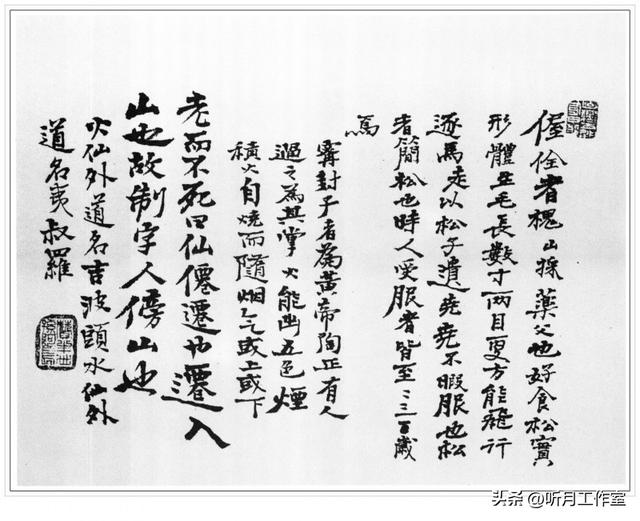 偓佺者槐山採藥父也好食松實
形體生毛長數寸兩目更方能飛行
逐馬走以松子遺堯堯不暇服也松
者簡松也時人受服者皆至二三百歲
焉
甯封子者為黃帝陶正有人
過之為其掌火能出五色煙
積火自燒而隨烟气或上或下
老而不死曰仙僊遷也遷入
山也故制字人傍山也
火仙外道名吉波頭水仙外
道名夷叔羅
头条 @听月工作室